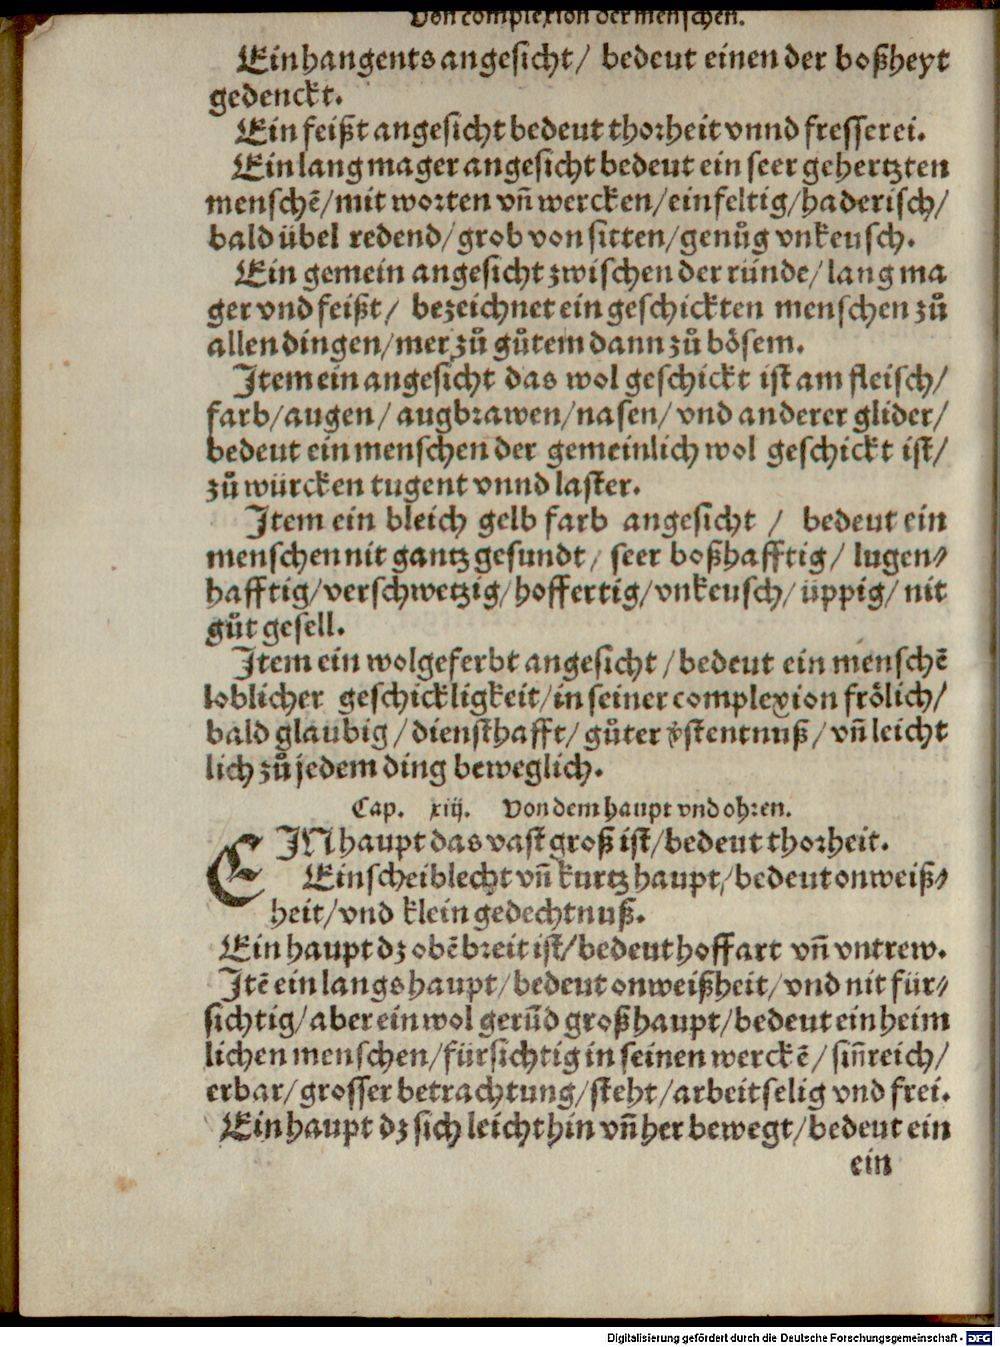 Von complexion der menschen.
Ein hangents angesicht / bedeut einen der boßheyt
gedenckt.
Ein feißt angesicht bedeut thorheit vnnd fresserei.
Ein lang mager angesicht bedeut ein seer gehertzten
menschē/mit worten vn̄ wercken/einfeltig/haderisch/
bald übel redend/grob von sitten/genůg vnkeusch.
Ein gemein angesicht zwischen der ründe/lang ma
ger vnd feißt/ bezeichnet ein geschickten menschen zů
allen dingen/mer zů gůtem dann zů bösem.
Item ein angesicht das wol geschickt ist am fleisch/
farb/augen/ augbrawen/nasen/ vnd anderer glider/
bedeut ein menschen der gemeinlich wol geschickt ist/
zů würcken tugent vnnd laster.
Item ein bleich gelb farb angesicht / bedeut ein
menschen nit gantz gesundt/ seer boßhafftig/ lugen⸗
hafftig/verschwetzig/hoffertig/vnkeusch/üppig/ nit
gůt gesell.
Item ein wolgeferbt angesicht /bedeut ein menschē
loblicher geschickligkeit/in seiner complexion frölich/
bald glaubig /diensthafft/ gůter v̓stentnuß/vn̄ leicht
lich zů jedem ding beweglich.
Cap. xiij. Von dem haupt vnd ohren.
EIN haupt das vast groß ist/bedeut thorheit.
Ein scheiblecht vn̄ kurtz haupt/bedeut onweiß⸗
heit/vnd klein gedechtnuß.
Ein haupt dz obē breit ist/bedeut hoffart vn̄ vntrew.
Itē ein langs haupt/bedeut onweißheit/vnd nit für⸗
sichtig/aber ein wol gerūd groß haupt/bedeut ein heim
lichen menschen/fürsichtig in seinen werckē/sin̄reich/
erbar/grosser betrachtung/steht/arbeitselig vnd frei.
Ein haupt dz sich leicht hin vn̄ her bewegt/bedeut ein
ein
Digitalisierung gefördert durch die Deutsche Forschungsgemeinschaft - DFG